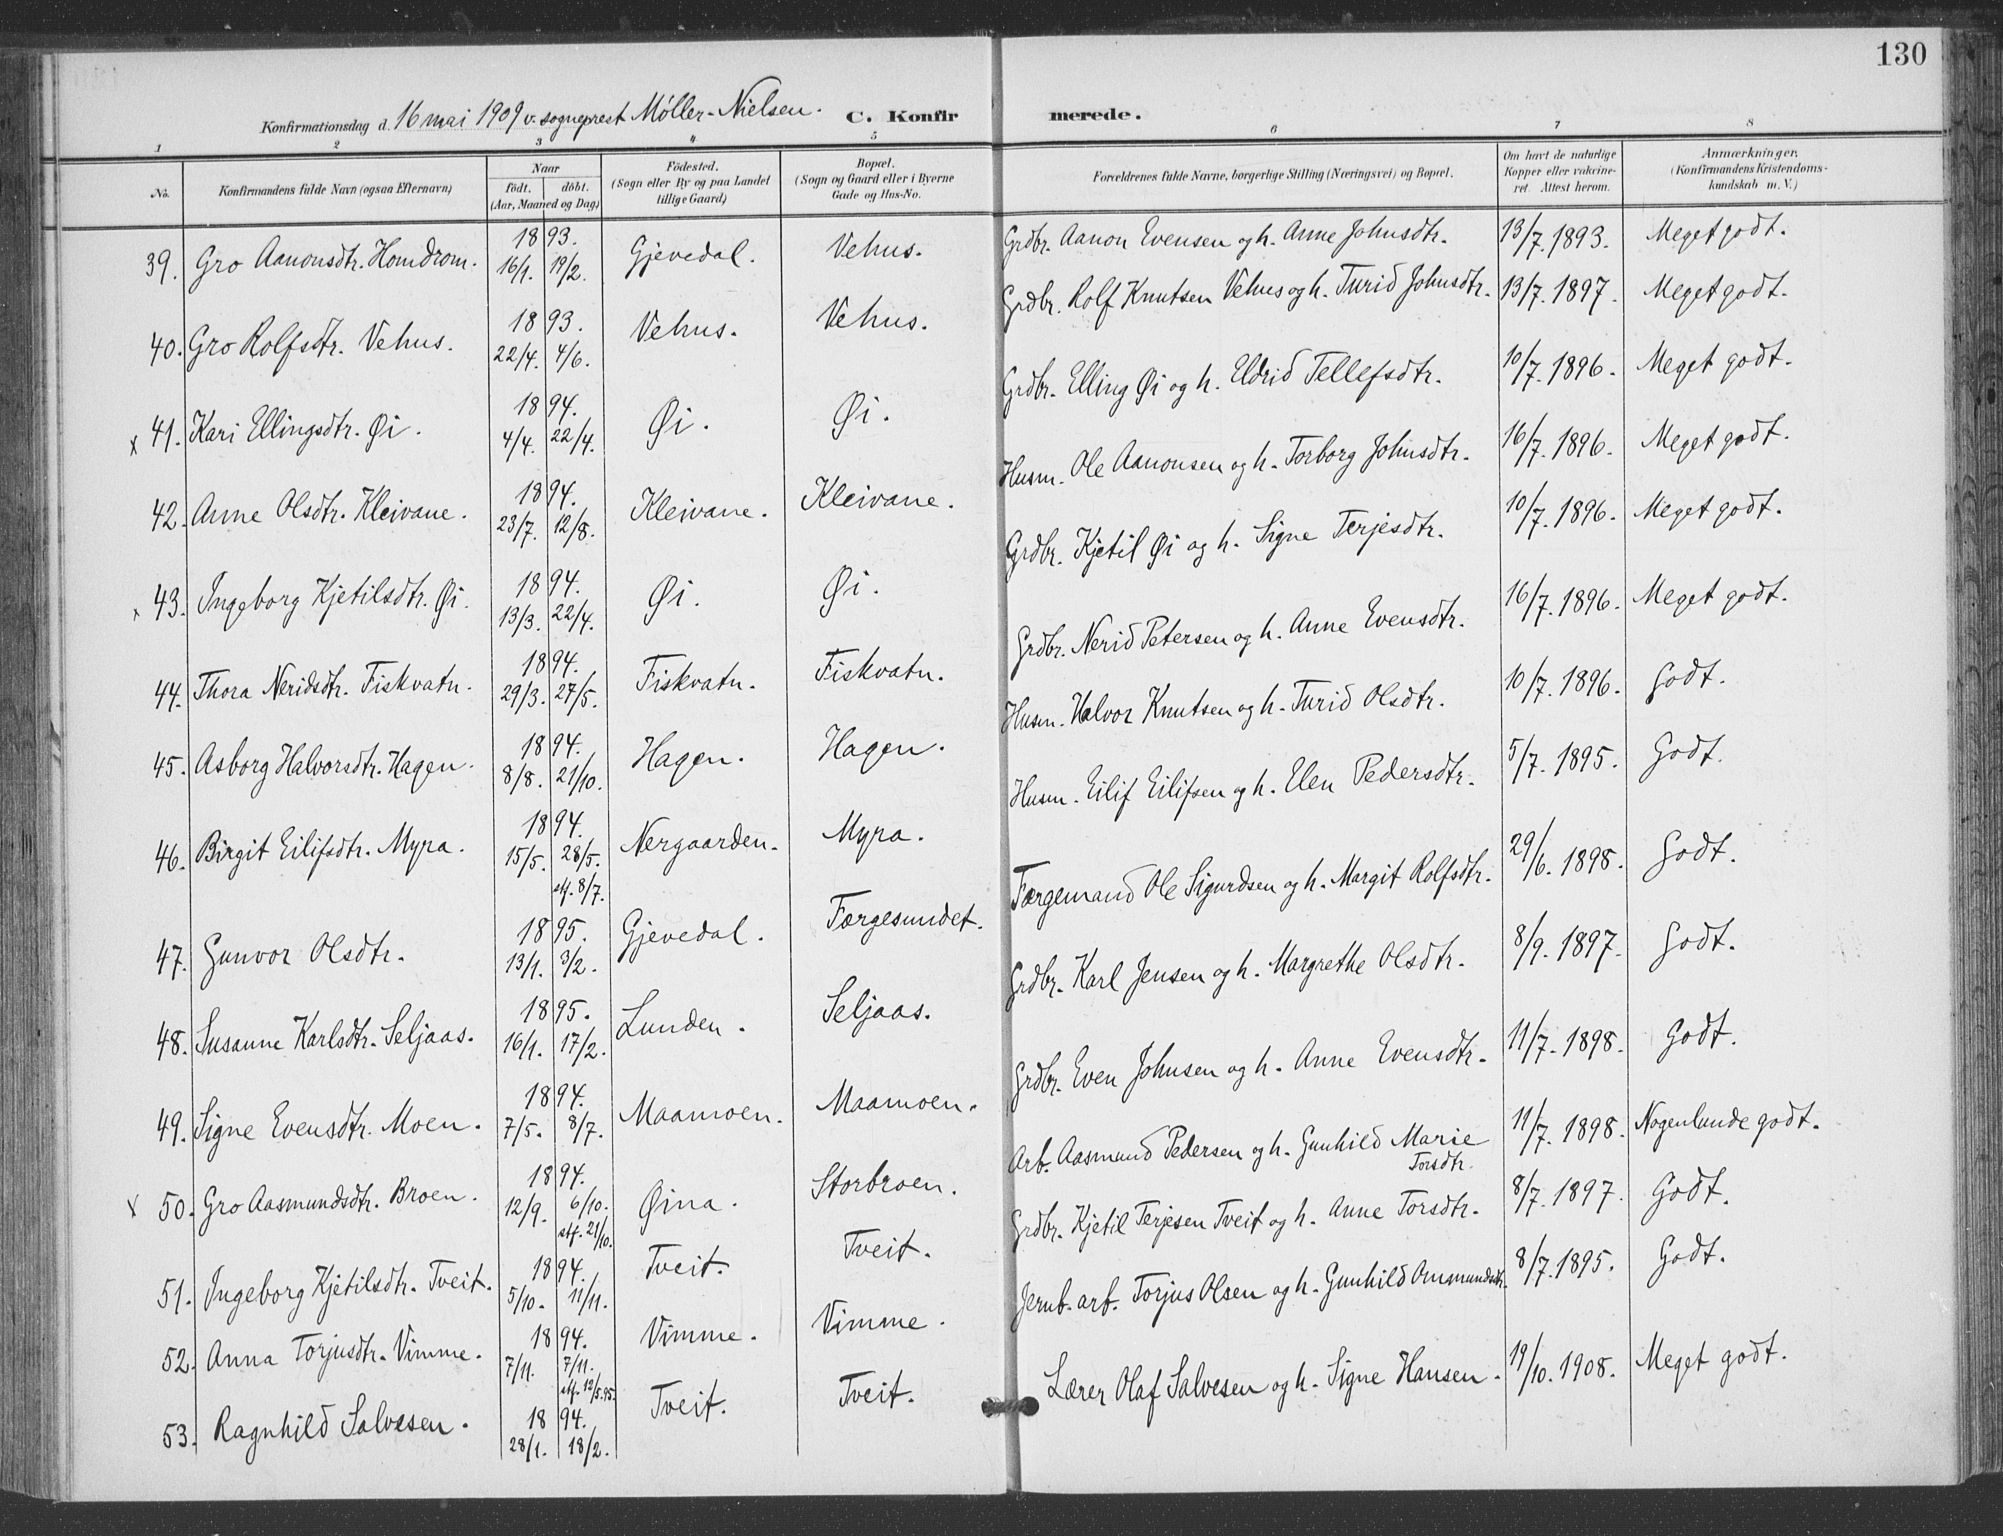 130
Konfirmationsdag d. 16 mai 1909 v. sogneprest Møller-Nielsen. C. Konfirmerede.
1 2 3 4 5 6 7 8
No. Konfirmandens fulde Navn (ogsaa Efternavn) Naar født. døbt. (Aar, Maaned og Dag) Födested. (Sogn eller By og paa Landet tillige Gaard) Bopæl. (Sogn og Gaard eller i Byerne Gade og Hus-No. Forældrenes fulde Navne, borgerlige Stilling (Næringsvei) og Bopæl. Om havt de naturlige Kopper eller vaccineret. Attest herom. Anmærkninger. (Konfirmandens Kristendomskundskab m. V.)
39. Gro Aanonsdtr. Homdrom. 1893. 16/1. 19/2. Gjevedal. Vehus. Grdbr. Aanon Evensen og h. Anne Johnsdtr. 13/7. 1893. Meget godt.
40. Gro Rolfsdtr. Vehus. 1893. 22/4. 4/6. Vehus. Vehus. Grdbr. Rolf Knutsen Vehus og h. Turid Johnsdtr. 13/7. 1897. Meget godt.
x 41. Kari Ellingsdtr. Øi. 1894. 4/4. 22/4. Øi. Øi. Grdbr. Elling Øi og h. Eldrid Tellefsdtr. 10/7. 1896. Meget godt.
42. Anne Olsdtr. Kleivane. 1894. 23/7. 12/8. Kleivane. Kleivane. Husm. Ole Aanonsen og h. Torborg Johnsdtr. 16/7. 1896. Meget godt.
x 43. Ingeborg Kjetilsdtr. Øi. 1894. 13/3. 22/4. Øi. Øi. Grdbr. Kjetil Øi og h. Signe Terjesdtr. 10/7. 1896. Meget godt.
44. Thora Neridsdtr. Fiskvatn. 1894. 29/3. 27/5. Fiskvatn. Fiskvatn. Grdbr. Nerid Petersen og h. Anne Evensdtr. 16/7. 1896. Meget godt.
45. Asborg Halvorsdtr. Hagen. 1894. 8/8. 21/10. Hagen. Hagen. Husm. Halvor Knutsen og h. Turid Olsdtr. 10/7. 1896. Godt.
46. Birgit Eilifsdtr. Myra. 1894. 15/5. 28/5. stf. 8/7. Nergaarden. Myra. Husm. Eilif Eilifsen og h. Elen Pedersdtr. 5/7. 1895. Godt.
47. Gunvor Olsdtr. 1895. 13/1. 3/2. Gjevedal. Færgesundet. Færgemand Ole Sigurdsen og h. Margit Rolfsdtr. 29/6. 1898. Godt.
48. Susanne Karlsdtr. Seljaas. 1895. 16/1. 17/2. Lunden. Seljaas. Grdbr. Karl Jensen og h. Margrethe Olsdtr. 8/9. 1897. Godt.
49. Signe Evensdtr. Moen. 1894. 7/5. 8/7. Maamoen. Maamoen. Grdbr. Even Johnsen og h. Anne Evensdtr. 11/7. 1898. Godt.
x 50. Gro Aasmundsdtr. Broen. 1894. 12/9. 6/10. stf. 21/10. Øina. Storbroen. Arb. Aasmund Pedersen og h. Gunhild Marie Torsdtr. 11/7. 1898. Nogenlunde godt.
51. Ingeborg Kjetilsdtr. Tveit. 1894. 5/10. 11/11. Tveit. Tveit. Grdbr. Kjetil Terjesen Tveit og h. Anne Torsdtr. 8/7. 1897. Godt.
52. Anna Torjusdtr. Vimme. 1894. 7/11. 7/11. stf. 12/5.95. Vimme. Vimme. Jernb. arb. Torjus Olsen og h. Gunhild Ommundsdtr. 8/7. 1895. Godt.
53. Ragnhild Salvesen. 1894. 28/1. 18/2. Tveit. Tveit. Lærer Olaf Salvesen og h. Signe Hansen. 19/10. 1908. Meget godt.